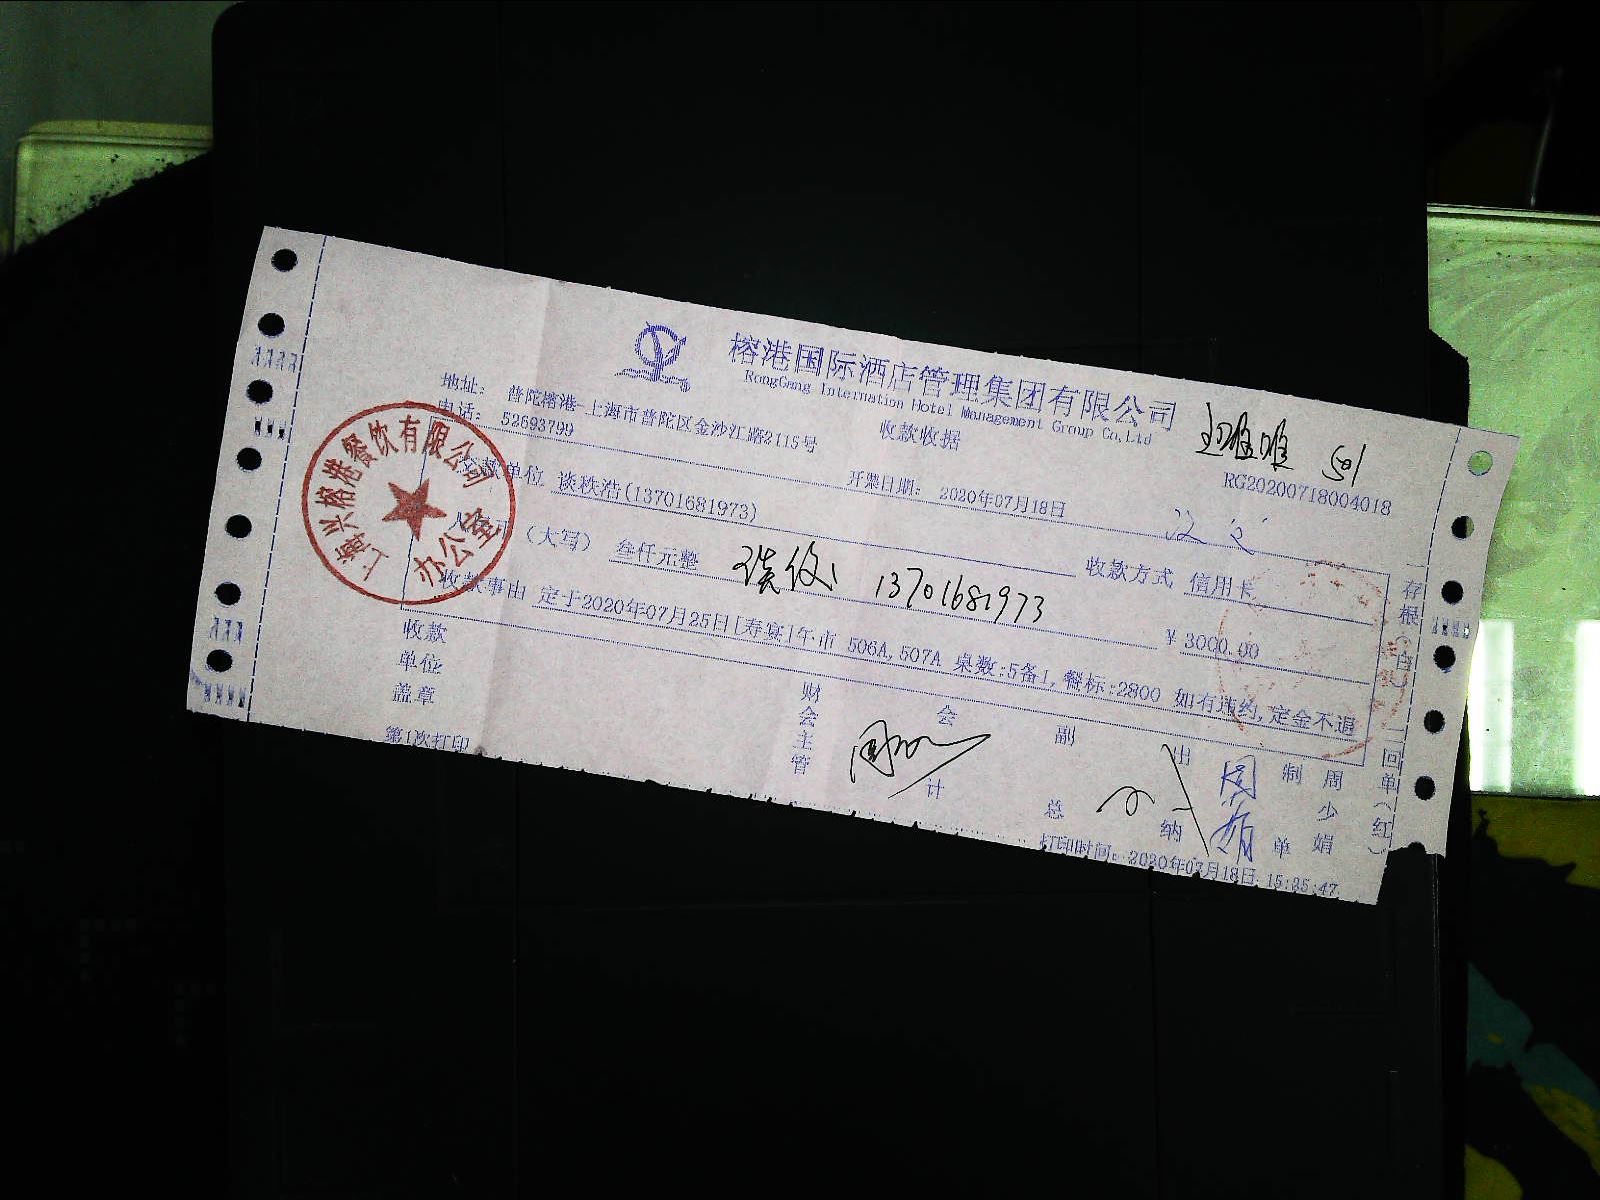 榕港国际酒店管理集团有限公司
RongGang Internation Hotel Management Group Co,Ltd
地址： 普陀榕港-上海市普陀区金沙江路2115号
电话： 52693799
收款收据
501
RG20200718004018
交款单位 谈秩浩(13701681973)
开票日期： 2020年07月18日
收款方式 信用卡
人民币 (大写) 叁仟元整
13701681973
¥ 3000.00
收款事由 定于2020年07月25日[寿宴]午市 506A,507A 桌数:5备1,餐标:2800 如有违约,定金不退
收款单位盖章
财会主管
会计
副总
出纳
制单
周少娟
第1次打印
打印时间：2020年07月18日 15:35:47
存根(白) 二回单(红)
上海兴榕港餐饮有限公司
办公室